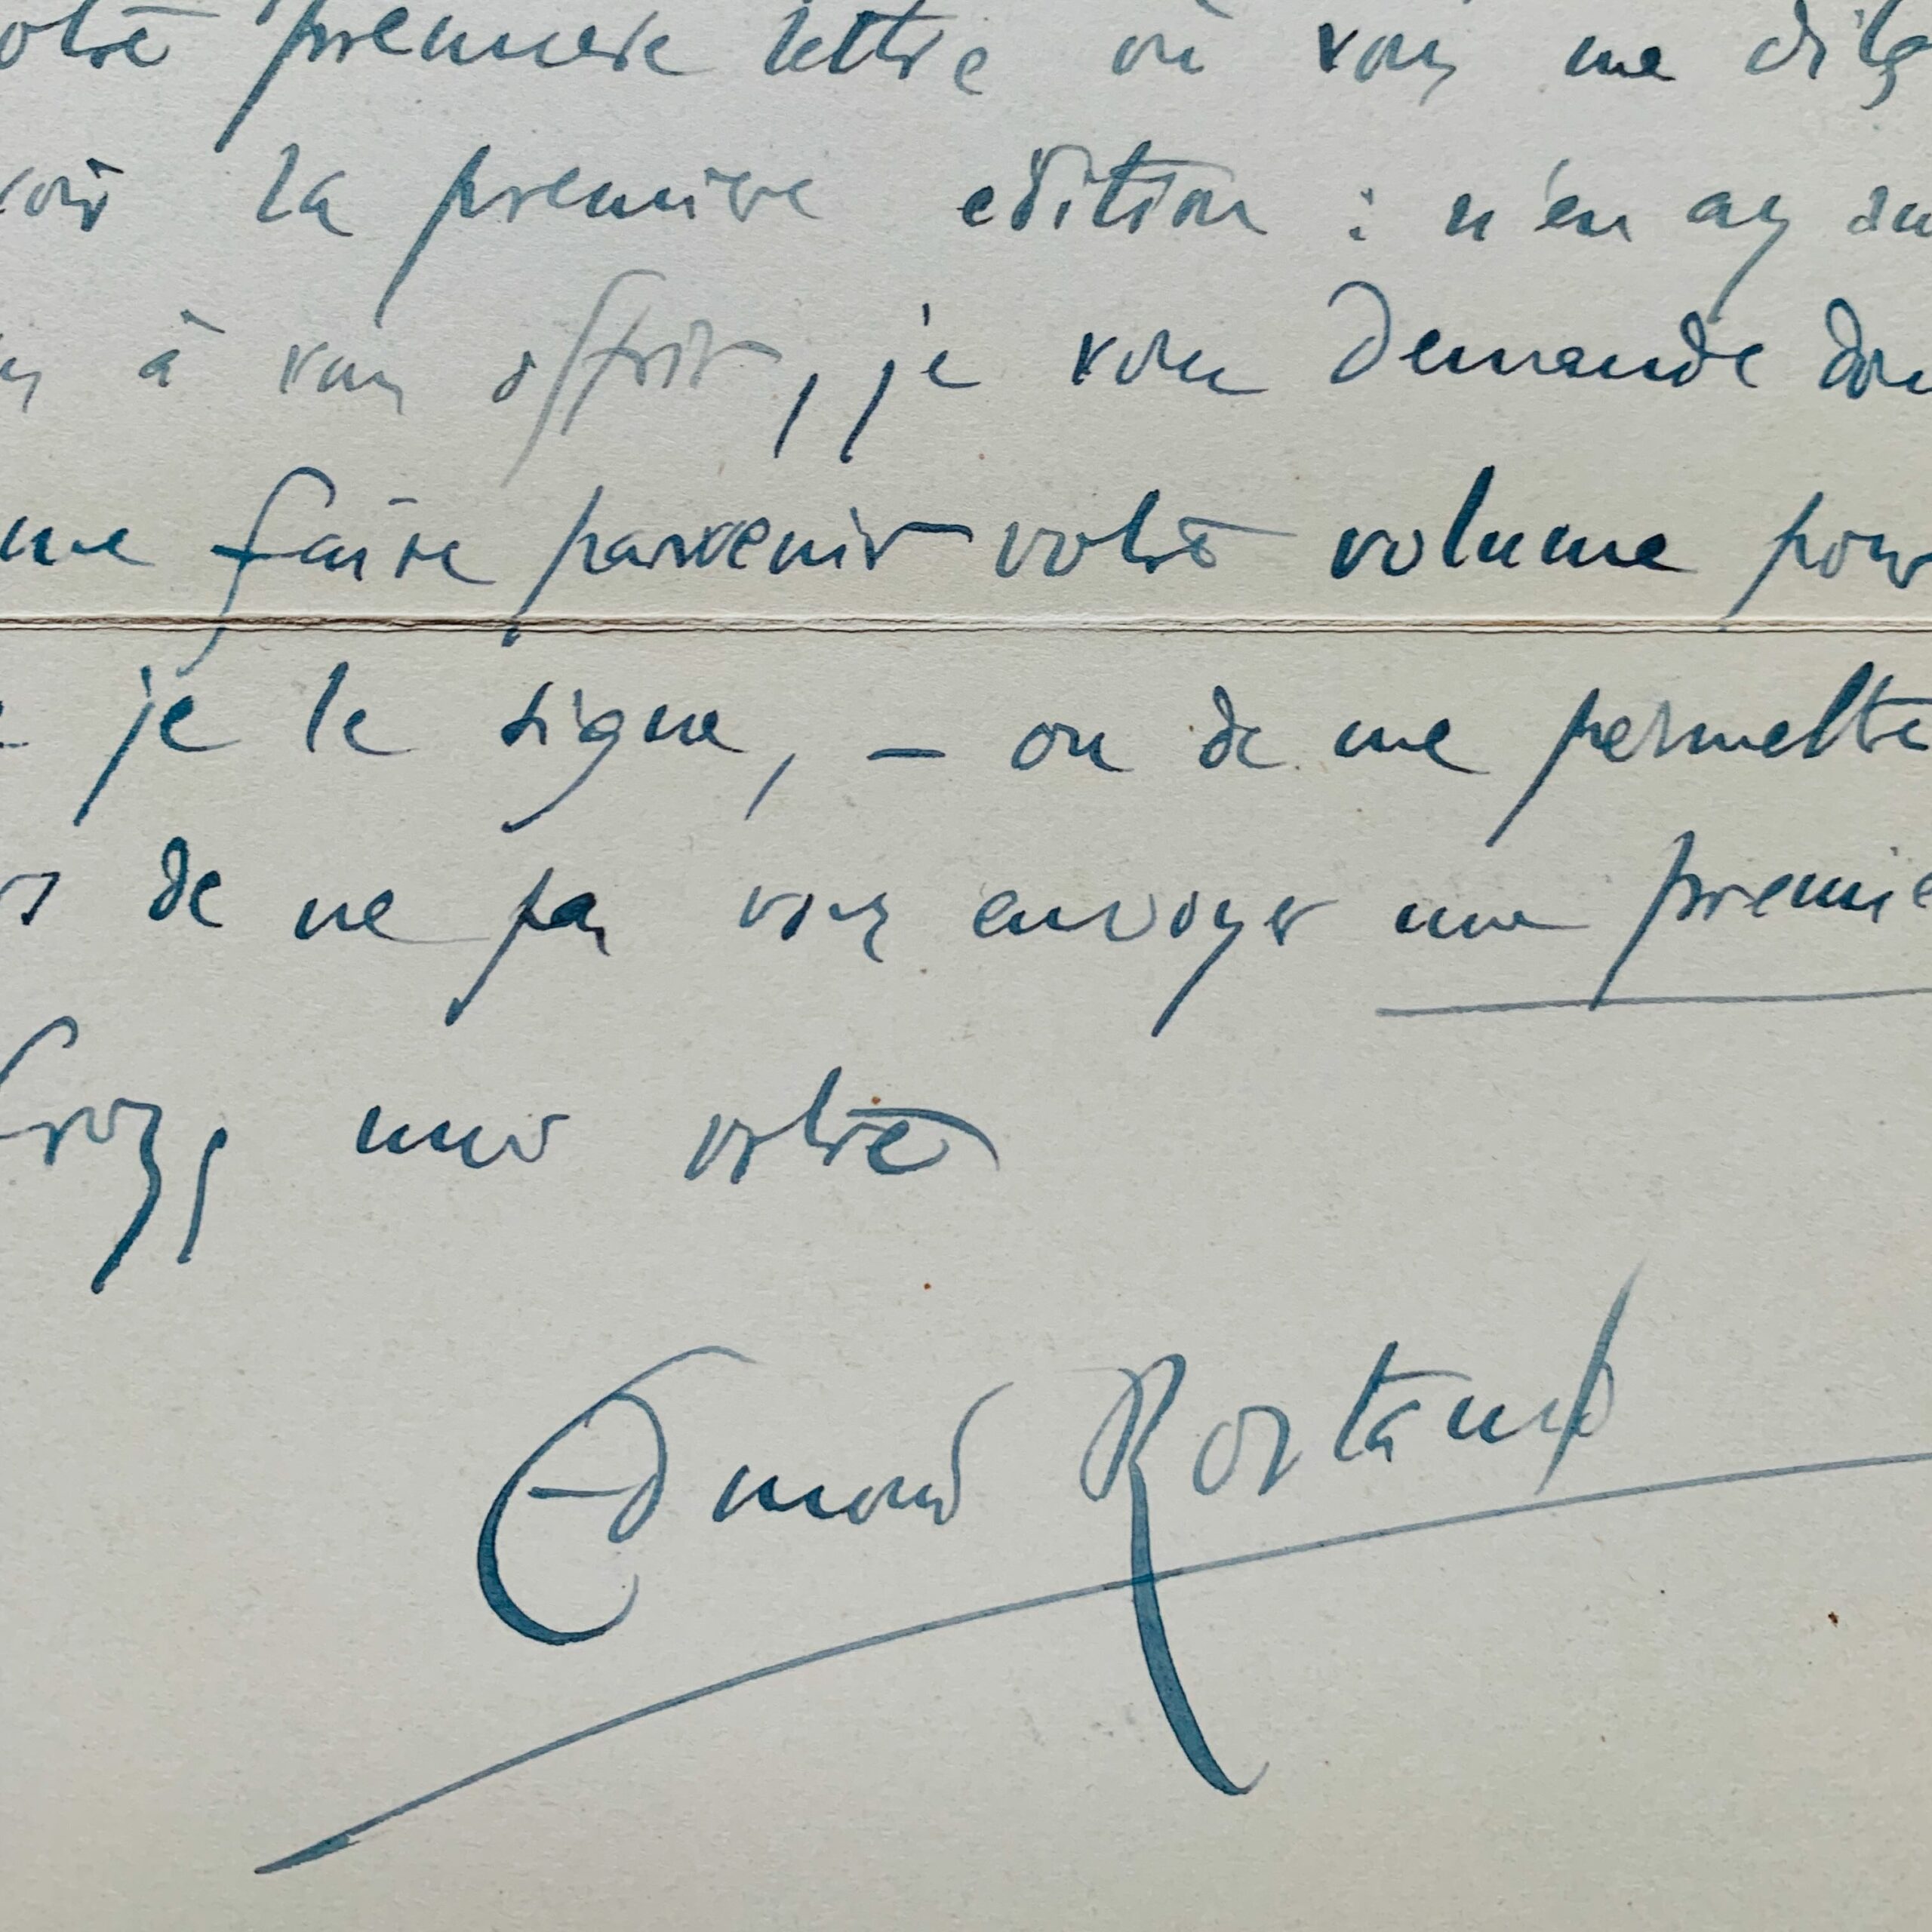 otre première lettre où vous me dites
voir la première édition : n'en ay au
à vous offrir, je vous demande don
me faire parvenir votre volume pour
je le signe, — ou de me permettre
de ne pas vous envoyer une premiè
votre
Edmond Rostand